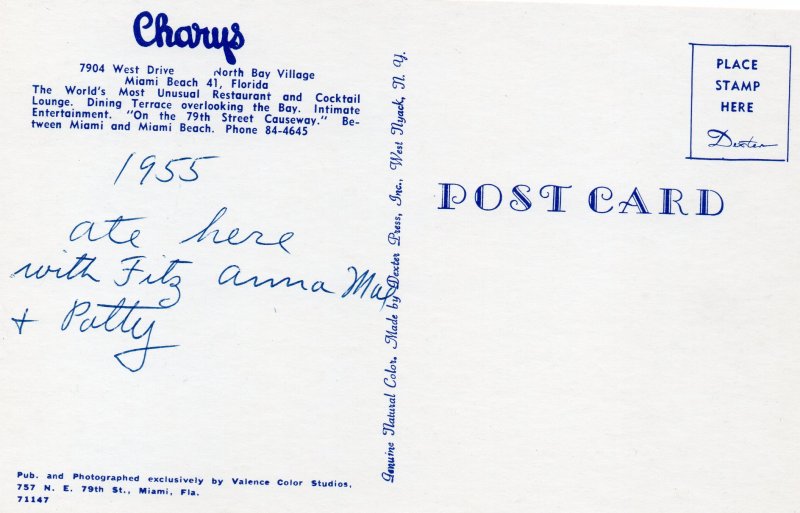 Charys
7904 West Drive North Bay Village
Miami Beach 41, Florida
The World's Most Unusual Restaurant and Cocktail
Lounge. Dining Terrace overlooking the Bay. Intimate
Entertainment. "On the 79th Street Causeway." Be-
tween Miami and Miami Beach. Phone 84-4645
1955
ate here
with Fitz Anna Mae
+ Patty
Pub. and Photographed exclusively by Valence Color Studios,
757 N. E. 79th St., Miami, Fla.
71147
Genuine Natural Color. Made by Dexter Press, Inc., West Nyack, N. Y.
PLACE
STAMP
HERE
Dexter
POST CARD